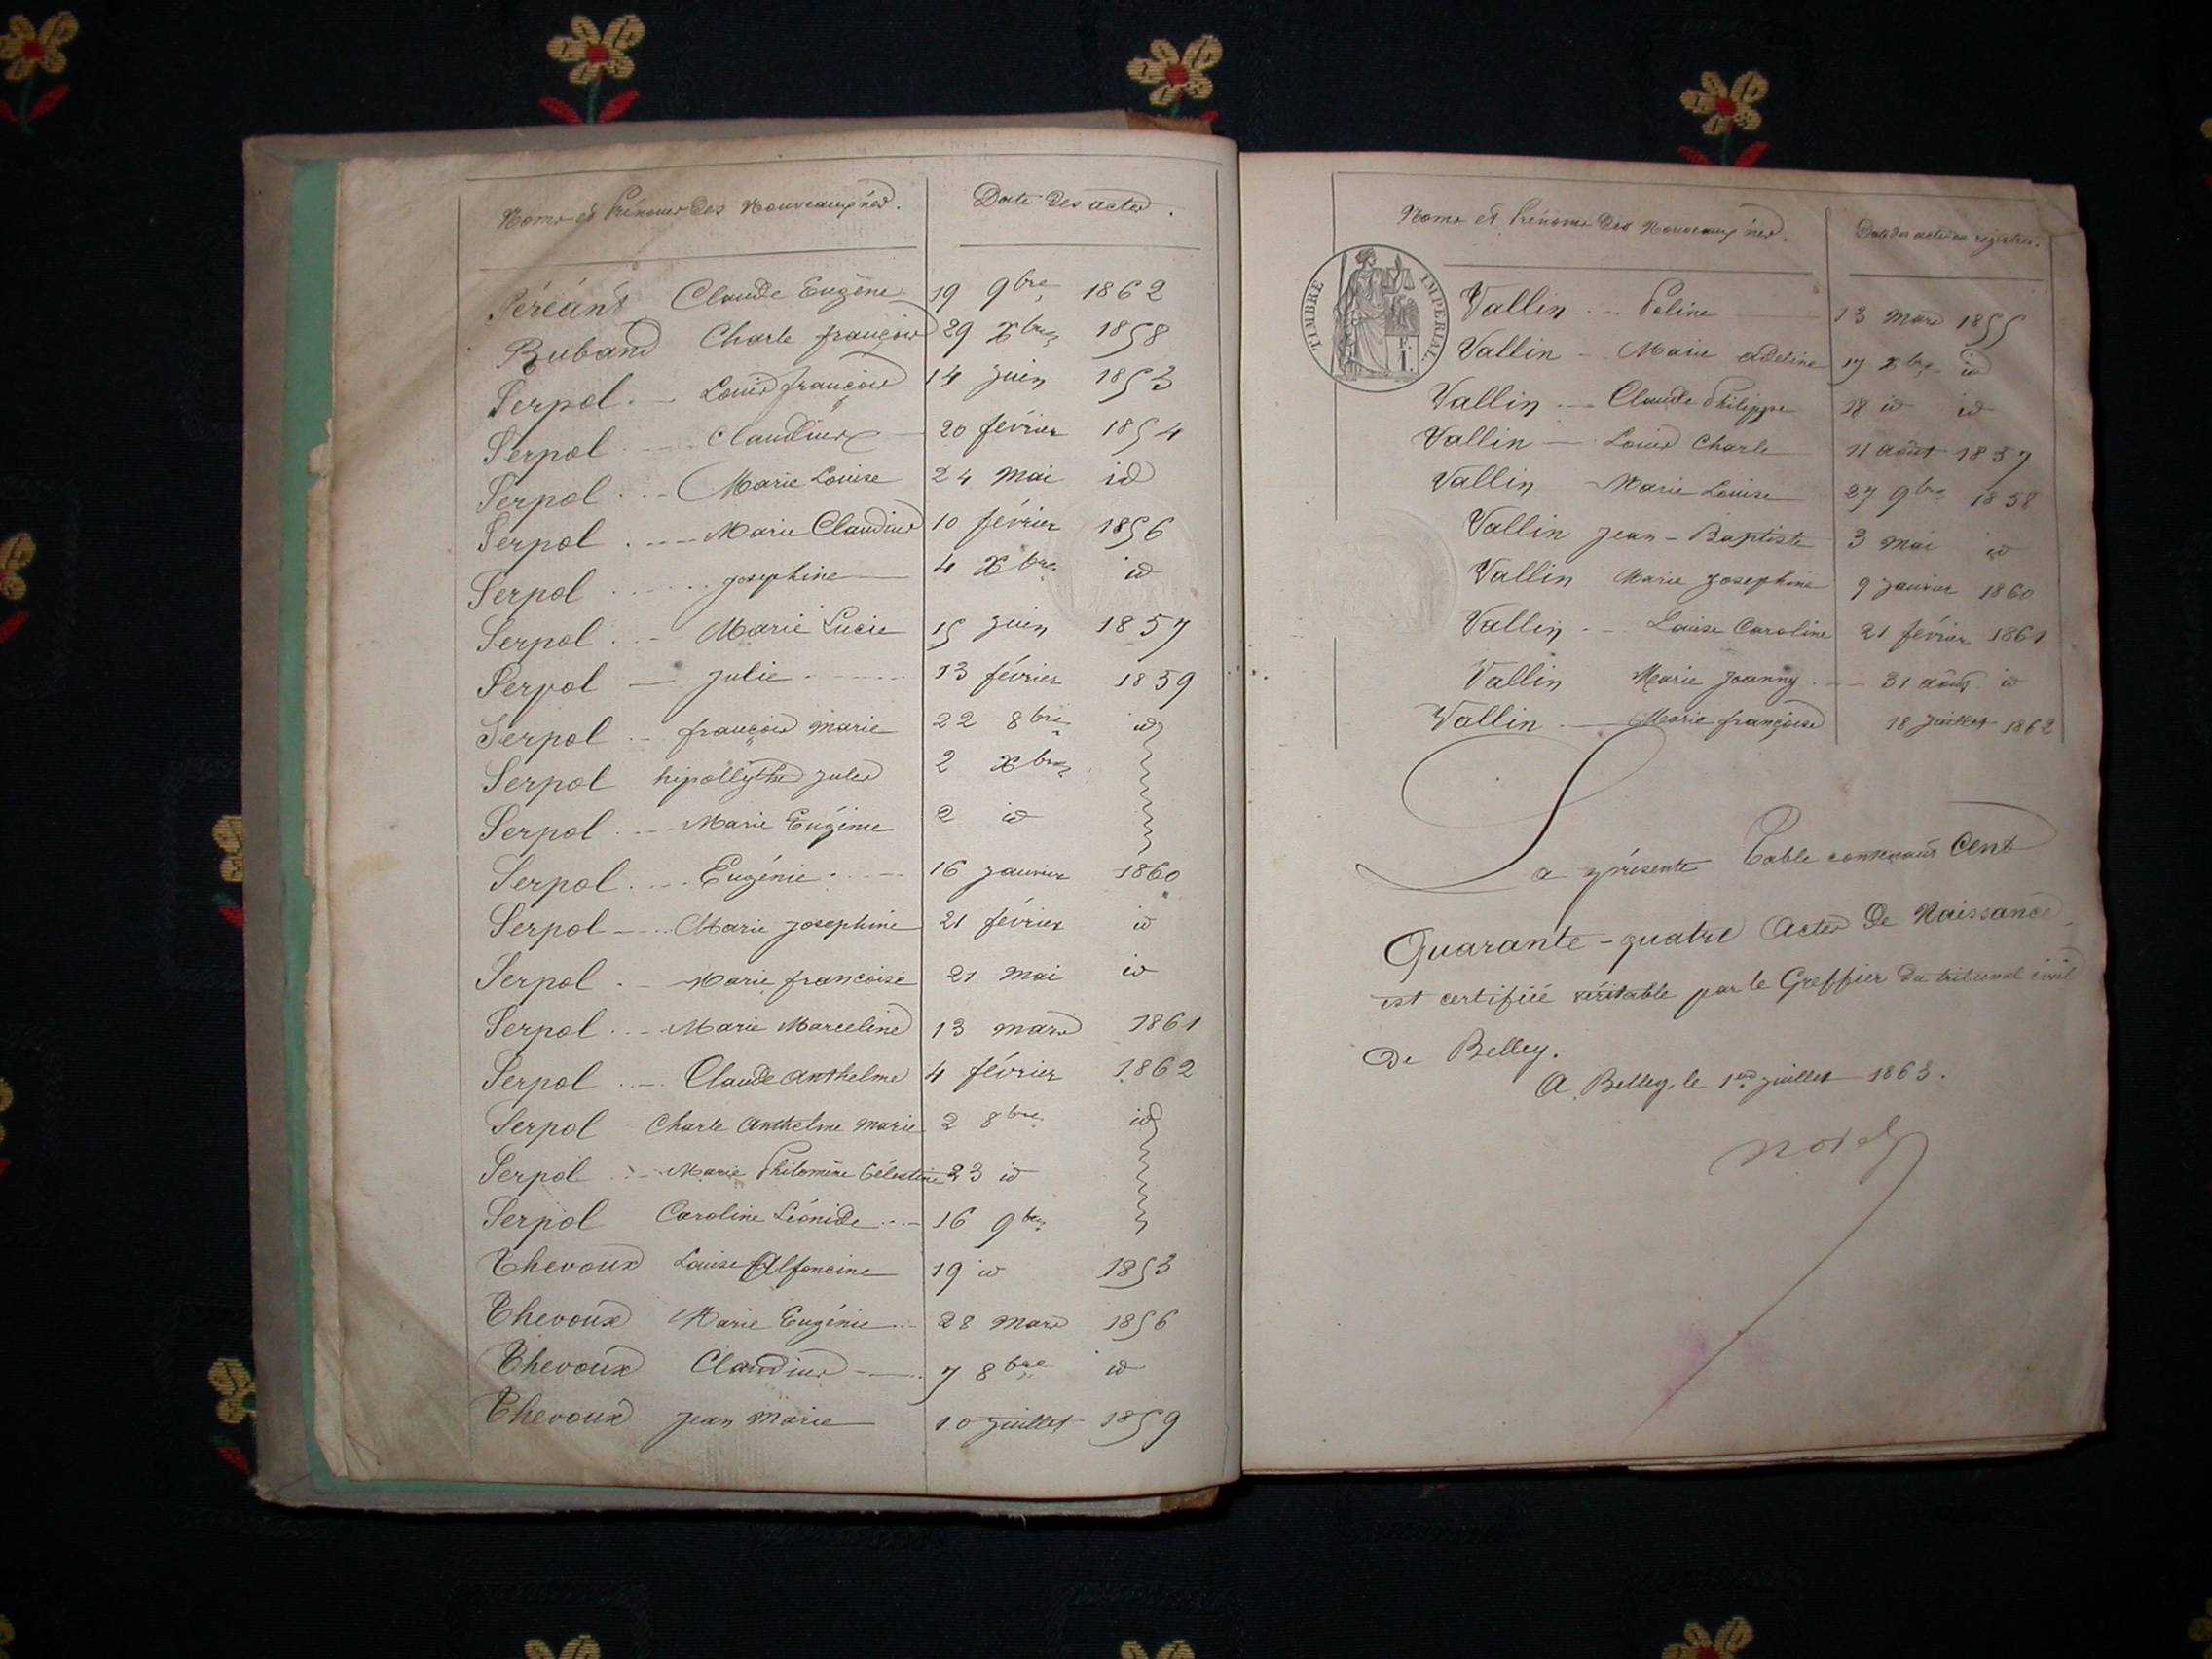 Noms et Prénoms des Nouveaux nés. Date des actes.
Claude Eugène 19 9bre 1862
Ruband Charle françois 29 Xbre 1858
Serpol Louis françois 14 juin 1853
Serpol Claudius 20 février 1854
Serpol Marie Louise 24 Mai id
Serpol Marie Claudius 10 février 1856
Serpol josephine 4 Xbre id
Serpol Marie Lucie 15 juin 1857
Serpol julie 13 février 1859
Serpol françois marie 22 8bre id
Serpol hipollythe jules 2 Xbre
Serpol Marie Eugénie 2 id
Serpol Eugénie 16 janvier 1860
Serpol Marie josephine 21 février id
Serpol Marie francoise 21 Mai id
Serpol Marie Marceline 13 mars 1861
Serpol Claude anthelme 4 février 1862
Serpol Charle anthelme marie 2 8bre id
Serpol Marie Philomène Célestine 23 id
Serpol Caroline Léonide 16 9bre
Thevoux Louise Alfoncine 19 id 1853
Thevoux Marie Eugénie 28 Mars 1856
Thevoux Claudius 7 8bre id
Thevoux jean marie 10 juillet 1859
Noms et Prénoms des Nouveaux nés. Date des actes au registre.
TIMBRE IMPERIAL
F. 1.
Vallin Poline 13 mars 1855
Vallin Marie adeline 17 Xbre id
Vallin Claude Philippe 18 id id
Vallin Louis Charle 11 août 1857
Vallin Marie Louise 27 9bre 1858
Vallin jean-Baptiste 3 mai id
Vallin Marie josephine 9 janvier 1860
Vallin Louise Caroline 21 février 1861
Vallin Marie joanny 31 août id
Vallin Marie françoise 18 juillet 1862
La présente Table contenant Cent
Quarante-quatre Actes de Naissance
est certifiée véritable par le Greffier du tribunal civil
De Belley.
A Belley, le 1er juillet 1863.